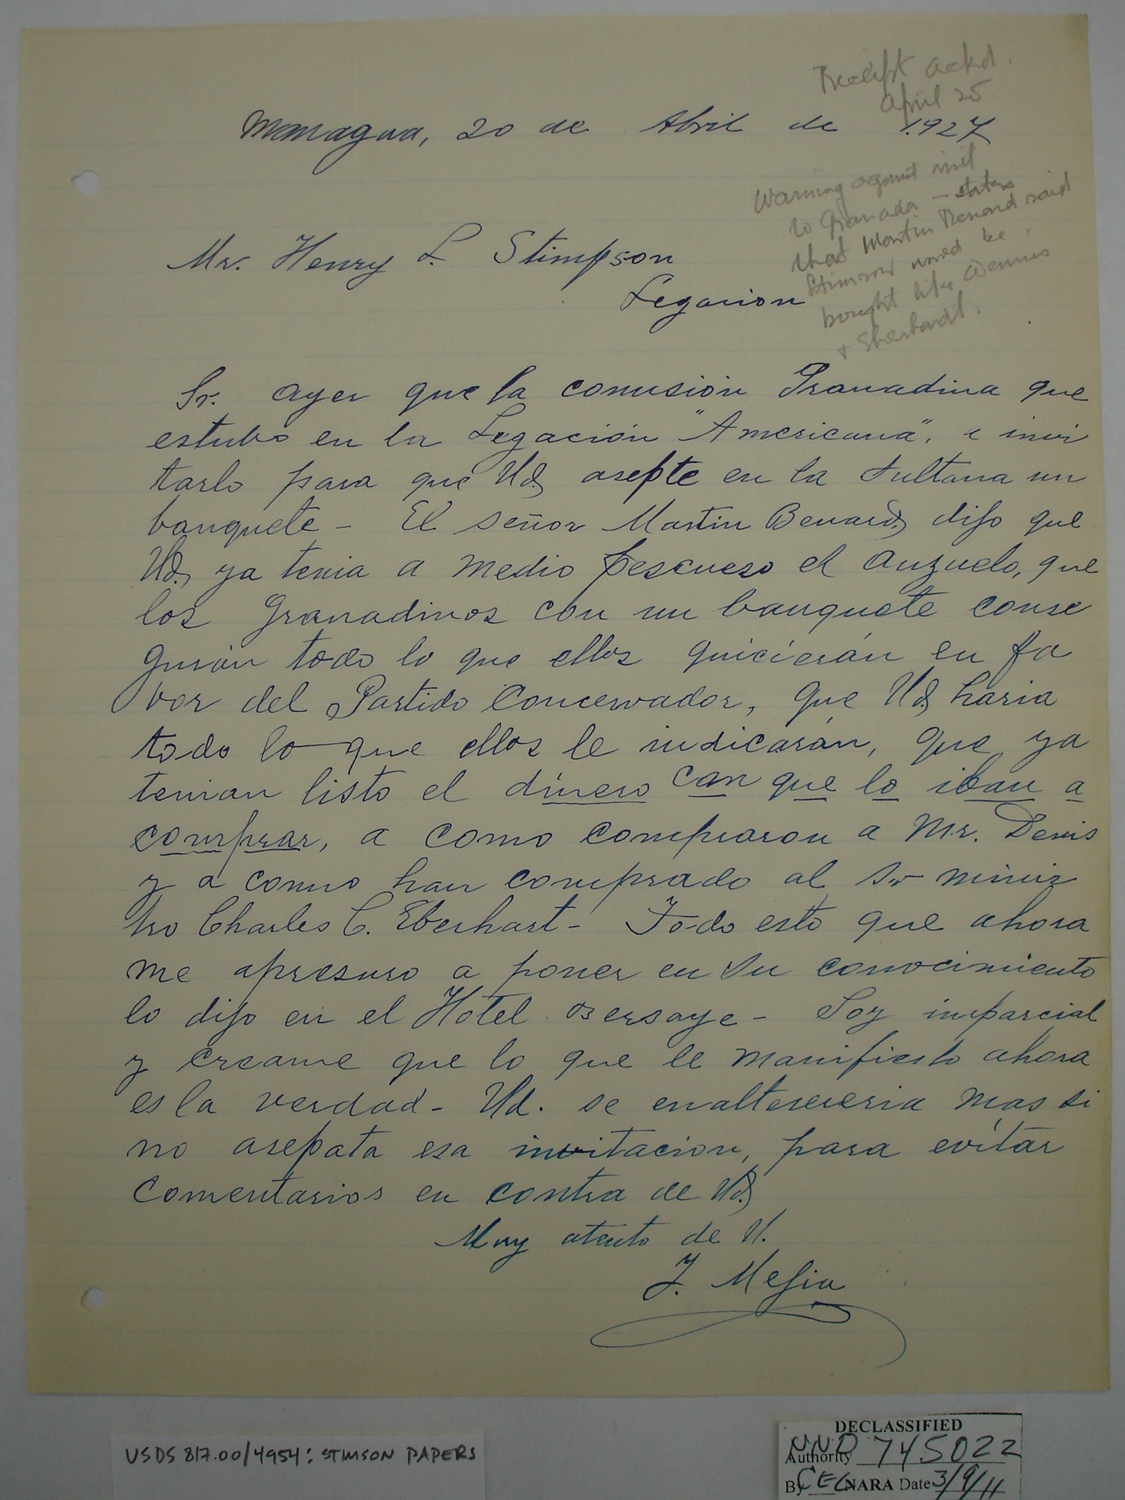 Receipt ackd.
April 25
Managua, 20 de Abril de 1.927
Warning against visit
to Granada – states
that Martin Benard said
Stimson would be
bought like Dennis
+ Eberhardt.
Mr. Henry L. Stimpson
Legacion
Sr. ayer que la comisión Granadina que
estubo en la Legación "Americana", e invi
tarlo para que Ud. asepte en la Sultana un
banquete – El señor Martin Benard, dijo que
Ud. ya tenia a medio pescueso el anzuelo, que
los Granadinos con un banquete conse
guirán todo lo que ellos quicierán en fa
vor del Partido Concervador, que Ud. haria
todo lo que ellos le indicarán, que ya
tenian listo el dinero con que lo iban a
comprar, a como compraron a Mr. Denis
y a como han comprado al Sr minis
tro Charles C. Eberhart – Todo esto que ahora
me apresuro a poner en su conocimiento
lo dijo en el Hotel Bersaye – Soy imparcial
y creame que lo que le manifiesto ahora
es la verdad – Ud. se enaltesereria mas si
no asepata esa invitacion, para evitar
comentarios en contra de Ud.
Muy atento de U.
J. Mejia
USDS 817.00/4954: STIMSON PAPERS
DECLASSIFIED
Authority NND 745022
By CEC NARA Date 3/9/11